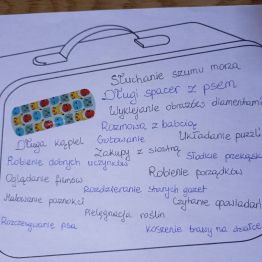 Słuchanie szumu morza
Długi spacer z psem
Wyklejanie obrazów diamentami
Rozmowa z babcią
Długa kąpiel
Gotowanie
Układanie puzzli
Zakupy z siostrą
Słodkie przekąski
Robienie dobrych uczynków
Oglądanie filmów
Robienie porządków
Rozdzieranie starych gazet
Malowanie paznokci
Czytanie opowiadań
Pielęgnacja roślin
Rozczesywanie psa
Koszenie trawy na działce